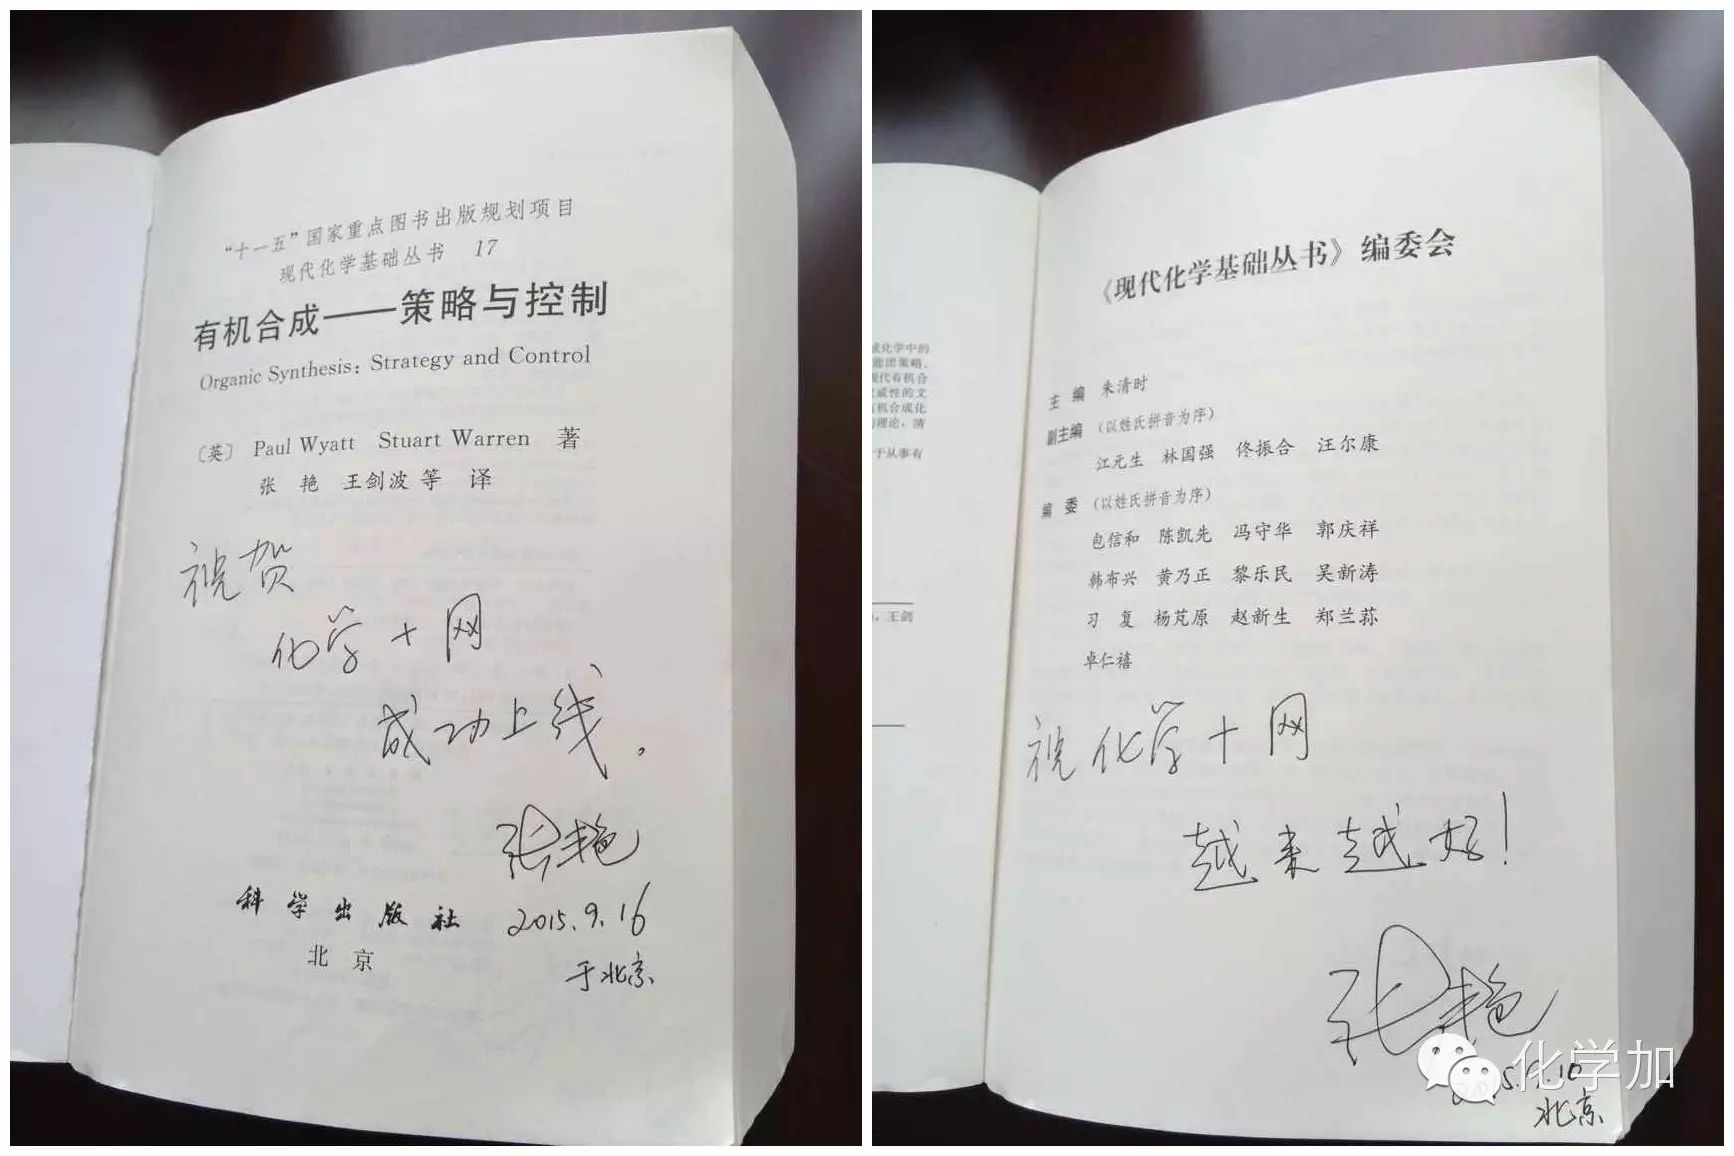 “十一五”国家重点图书出版规划项目
现代化学基础丛书 17
有机合成——策略与控制
Organic Synthesis: Strategy and Control
〔英〕 Paul Wyatt Stuart Warren 著
张 艳 王剑波 等 译
祝贺
化学+网
成功上线.
张艳
科学出版社
2015.9.16
北京
于北京
《现代化学基础丛书》编委会
成化学中的
能团策略、
现代有机合
权威性的文
有机合成化
理论，清
于从事有
王剑
主 编 朱清时
副主编 (以姓氏拼音为序)
江元生 林国强 佟振合 汪尔康
编 委 (以姓氏拼音为序)
包信和 陈凯先 冯守华 郭庆祥
韩布兴 黄乃正 黎乐民 吴新涛
习 复 杨芃原 赵新生 郑兰荪
卓仁禧
祝化学+网
越来越好!
张艳
化学加
北京